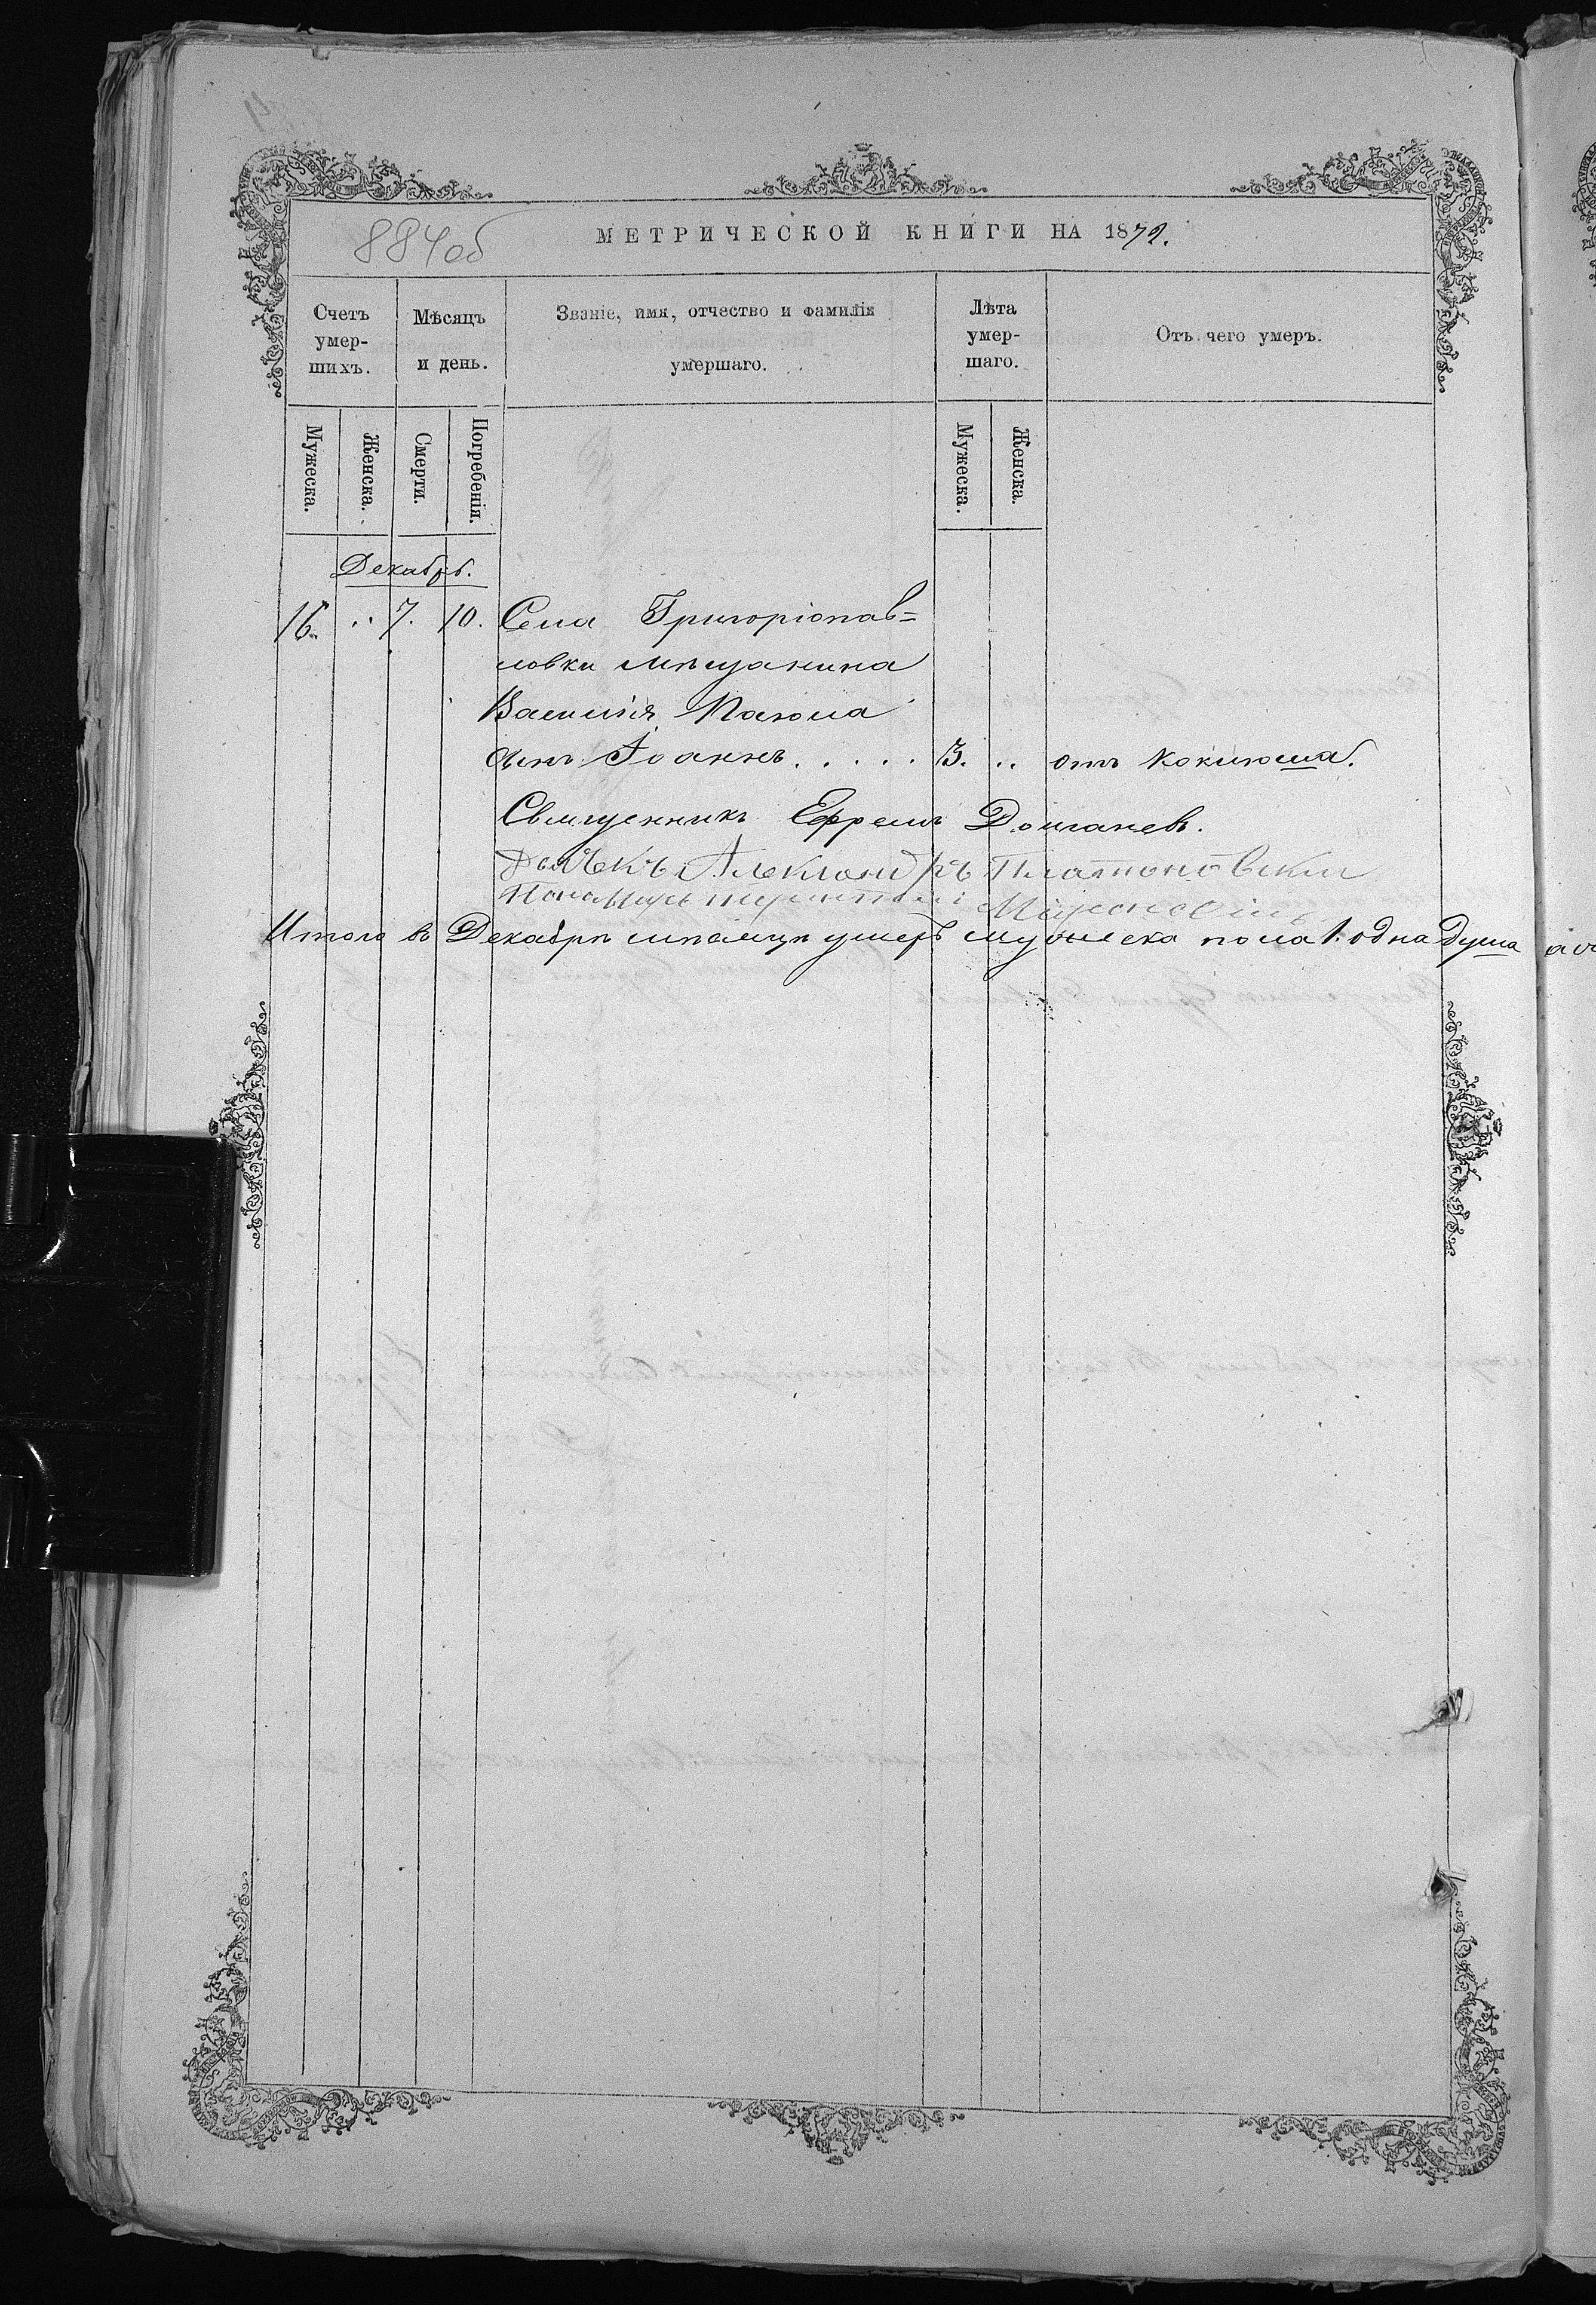 884об
МЕТРИЧЕСКОЙ КНИГИ НА 1872.
Счетъ умер-шихъ.
Мѣсяцъ и день.
Званіе, имя, отчество и фамилія умершаго.
Лѣта умер-шаго.
Отъ чего умеръ.
Мужеска.
Женска.
Смерти.
Погребенія.
Мужеска.
Женска.
Декабрь.
16. .. 7. 10. Села Григоріопав=
ловки мѣщанина
Василія
сынъ Іоаннъ. . . . . 3. .. отъ коклюша.
Священникъ Ефремъ
Дьячекъ Александръ Платоновскій
Пономарь
Итого въ Декабрѣ мѣсяцѣ умеръ мужеска пола 1. одна душа